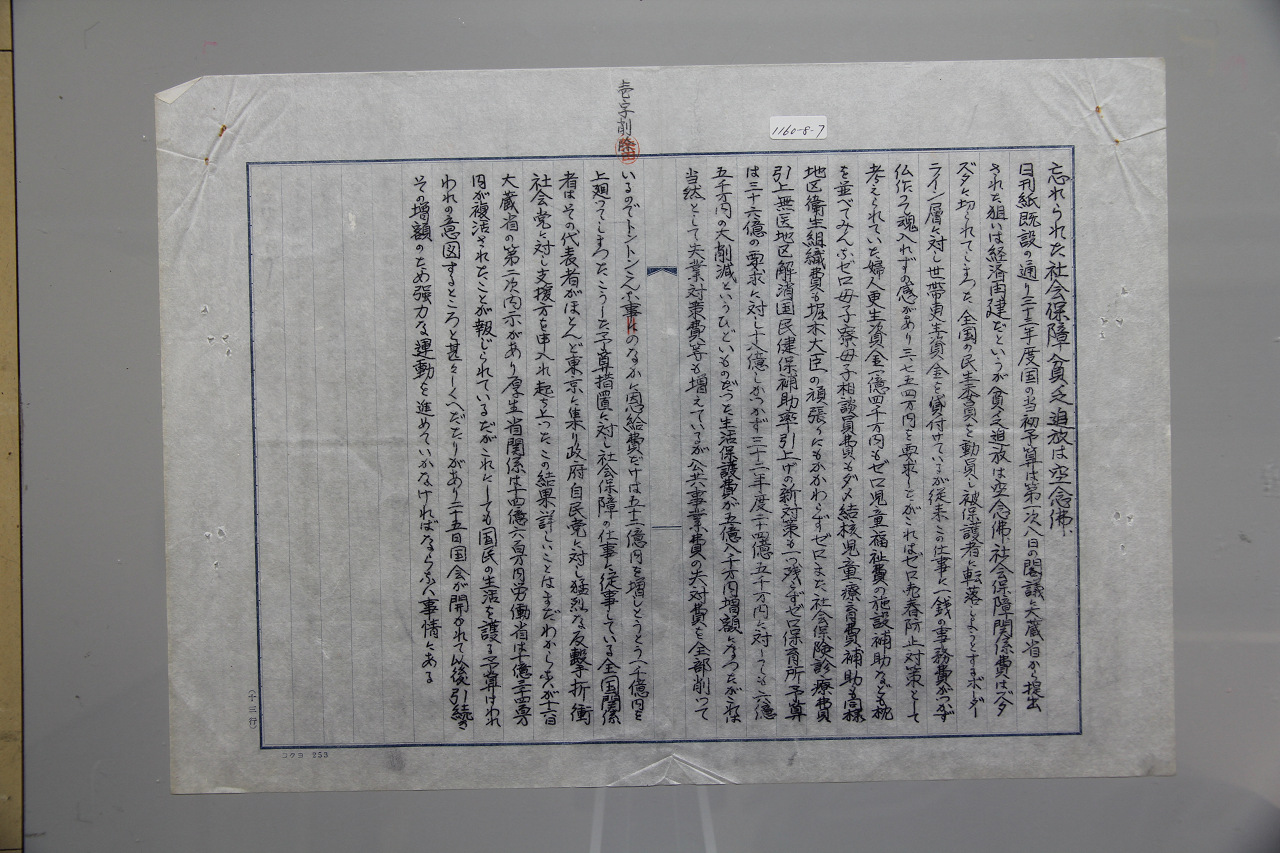 壱字削除
1160-8-7
忘れられた社会保障貧乏追放は空念佛
日刊紙既設の通り三十三年度国の当初予算は第一次八日の閣議に大蔵省から提出
された狙いは経済再建だというが貧乏追放は空念佛、社会保障関係費はズタ
ズタに切られてしまった全国の民生委員を動員し被保護者に転落しようとするボーダー
ライン層に対し世帯更生資金を貸付けているが従来この仕事に一銭の事務費がつかず
仏作って魂入れずの感があり三、七五四万円を要求したがこれはゼロ売春防止対策として
考えられていた婦人更生資金一億四千万円もゼロ児童福祉費の施設補助なども枕
を並べてみんなゼロ母子寮母子相談員費もダメ結核児童療育費補助も同様
地区衛生組織費も堀木大臣の頑張りにもかかわらずゼロまた社会保険診療費
引上無医地区解消国民健保補助率引上げの新対策も一つ残らずゼロ保育所予算
は三十六億の要求に対し十八億しかつかず三十二年度二十四億五千万円に対しても六億
五千万円の大削減というひどいものだった生活保護費が五億八千万円増額になったがこれは
当然として失業対策費等も増えているが公共事業費の失対費を全部削って
いるのでトントンこんな事にのなかに恩給費だけは五十三億円を増しとうとう一千億円を
上廻ってしまったこうした予算措置に対し社会保障の仕事に従事している全国関係
者はその代表者がほとんど東京に集り政府自民党に対し猛烈な反撃手折衝
社会党に対し支援方を申入れ起ち上ったこの結果詳しいことはまだわからないが十六日
大蔵省の第二次内示があり厚生省関係は十四億六百万円労働省は十億三千四百万
円が複活されたことが報じられているだがこれにしても国民の生活を護る予算はわれ
われの意図するところと甚々しくへだたりがあり二十五日国会が開かれて以後引続き
その増額のため強力な運動を進めていかなければならない事情にある
(十三行)
コクヨ 253